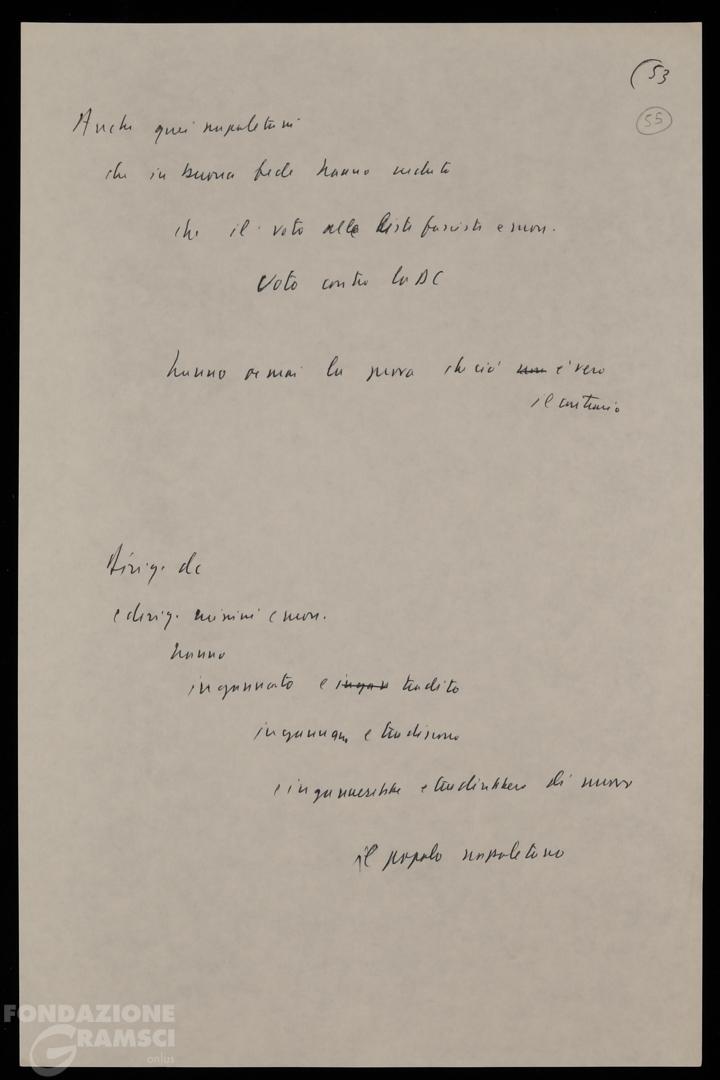 (53
55
Anche quei napoletani
che in buona fede hanno creduto
che il voto alle liste fasciste e mon.
voto contro la DC
hanno ormai la prova che ciò non è vero
il contrario
Dirig. dc
e dirig. missini e mon.
hanno
ingannato e ingan tradito
ingannano e tradiscono
e ingannerebbe e tradirebbero di nuovo
il popolo napoletano
FONDAZIONE
GRAMSCI
onlus